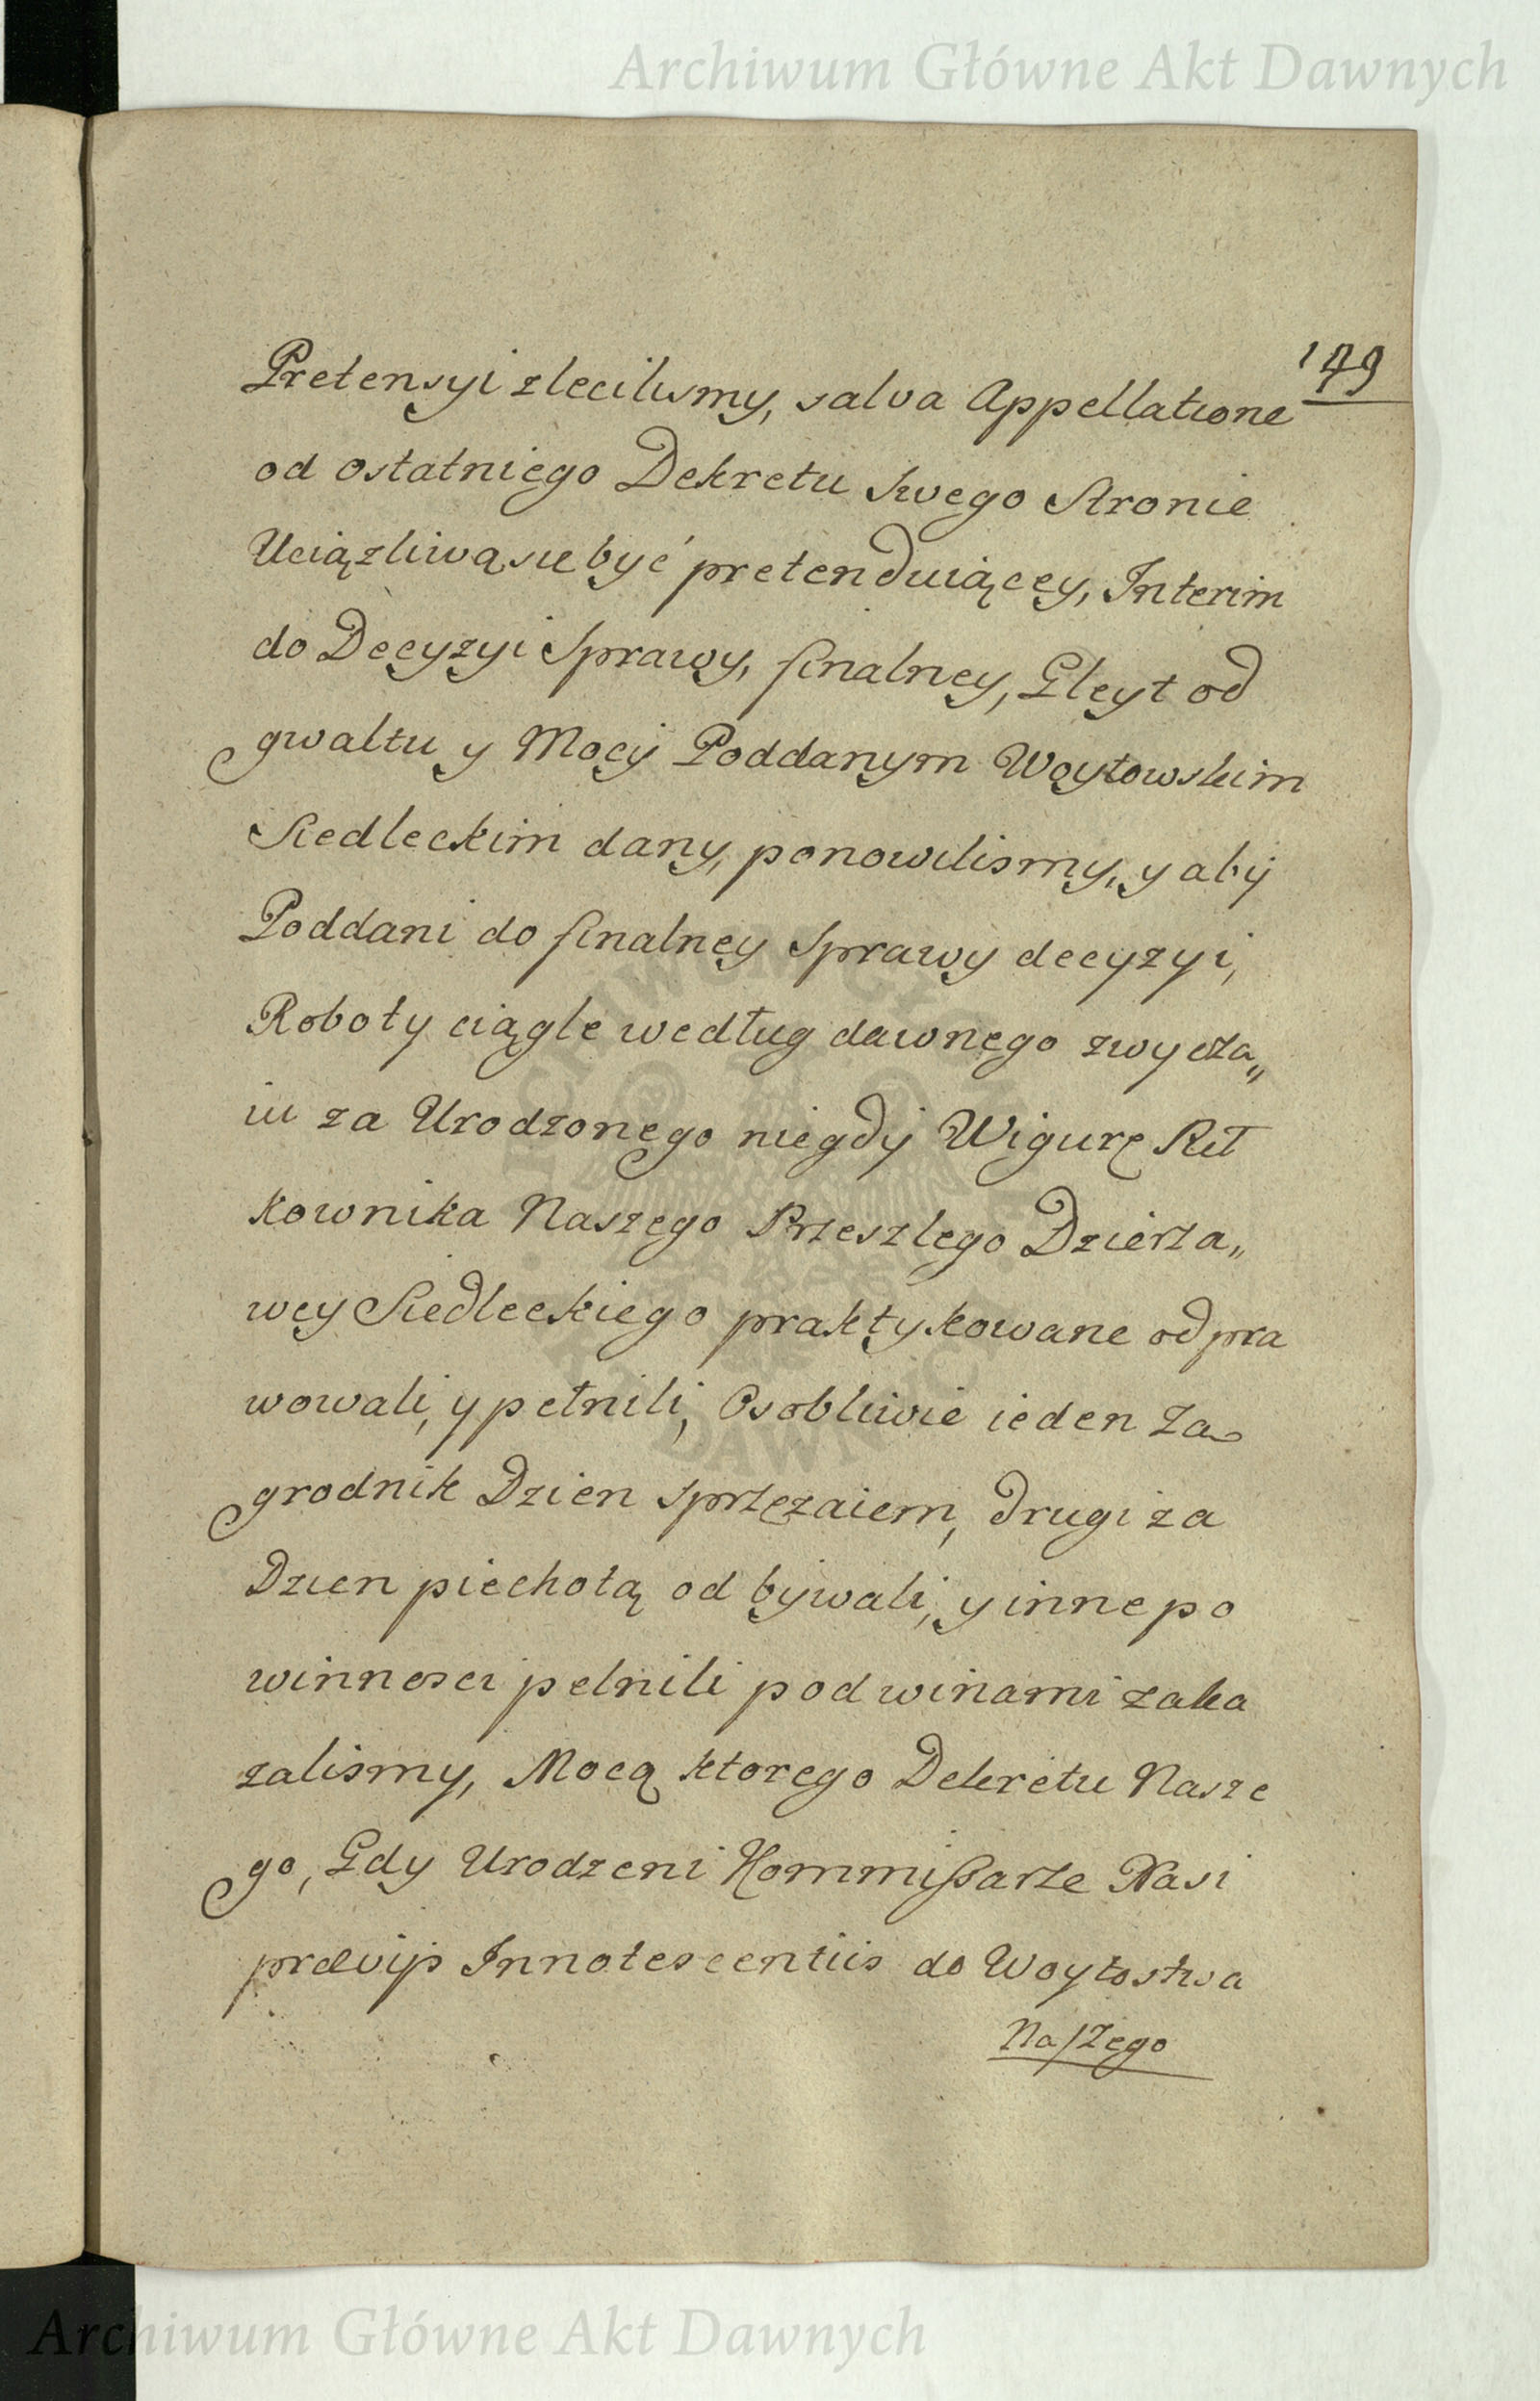 Archiwum Główne Akt Dawnych
179
Pretensyi zlecilismy, salva Appellatione
od ostatniego Dekretu swego Stronie
Uciązliwą się być pretenduiącey, Interim
do Decyzyi Sprawy, finalney, Gleyt od
gwaltu y Mocÿ Poddanym Woytowskim
Siedleckim dany, ponowilismy, y abÿ
Poddani do finalney Sprawy decyzyi,
Roboty ciągle według dawnego zwycza„
iu za Urodzonego niegdÿ Wigurę Puł
kownika Naszego Przeszlego Dzierża„
wcy Siedleckiego praktykowane odpra
wowali, y pełnili, Osobliwie ieden Za
grodnik Dzien sprzęzaiem, drugi za
Dzien piechotą od bÿwali, y inne po
winnosci pelnili pod winami zaka
zalismy, Mocą ktorego Dekretu Nasze
go, Gdy Urodzeni Kommißarze Nasi
prævijs Innotescentiis do Woytostwa
Naszego
Archiwum Główne Akt Dawnych